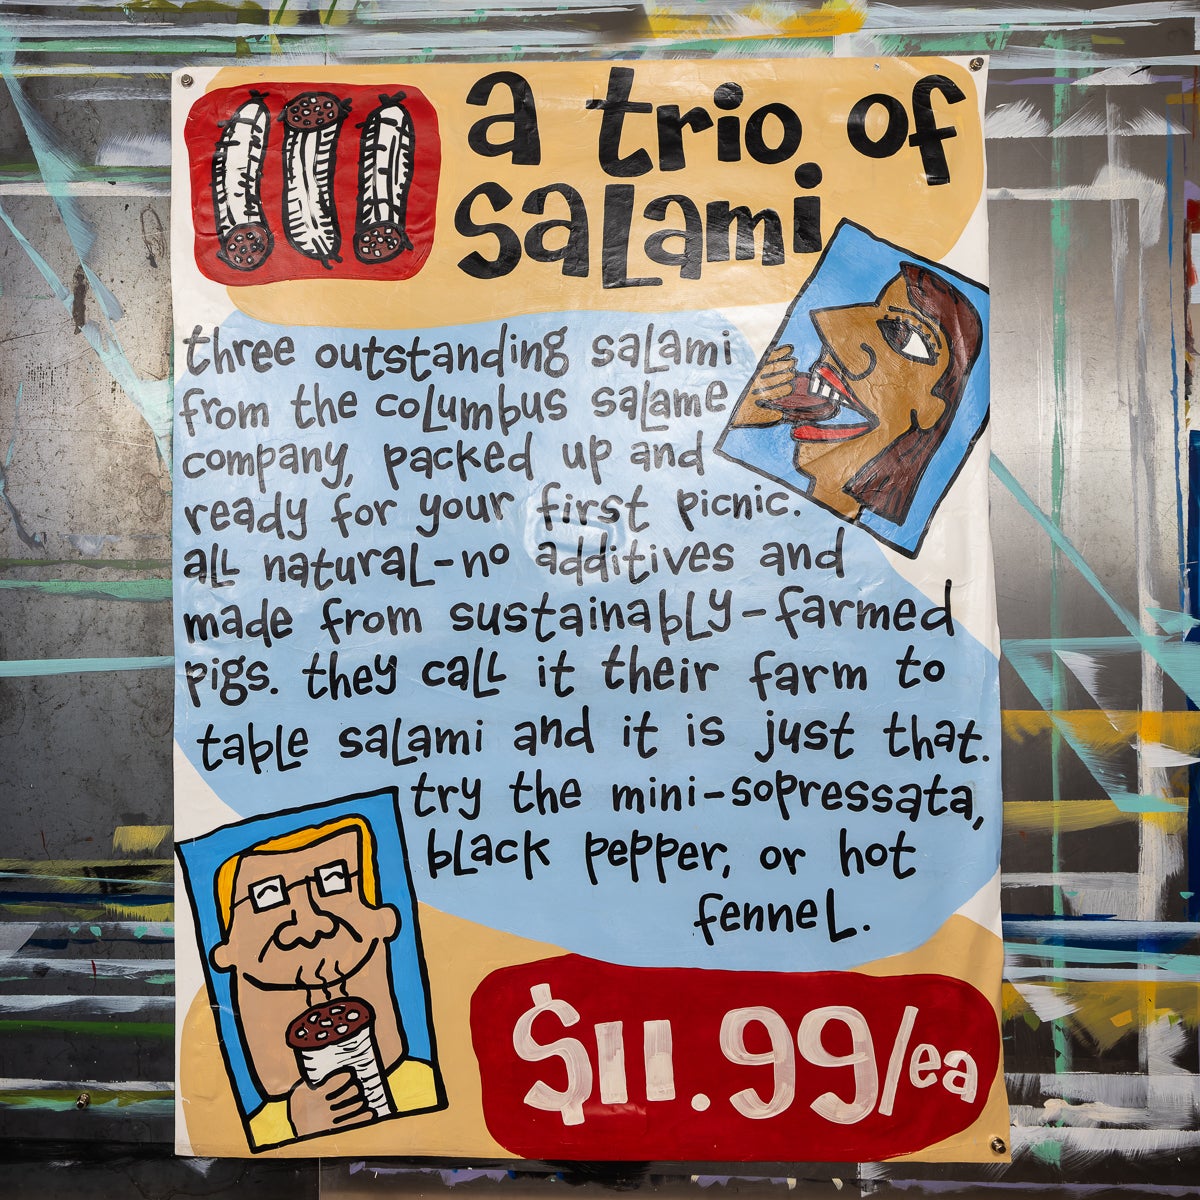 a trio of
salami
three outstanding salami
from the columbus salame
company, packed up and
ready for your first picnic.
all natural-no additives and
made from sustainably-farmed
pigs. they call it their farm to
table salami and it is just that.
try the mini-sopressata,
black pepper, or hot
fennel.
$11.99/ea